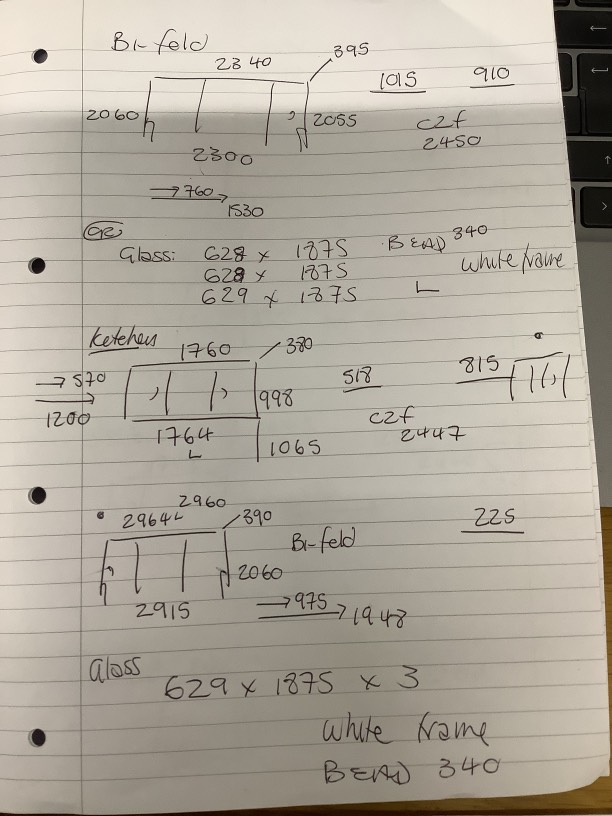 Bi-feld
2340
395
1015
910
2060
2055
c2f
2450
2300
→760
1530
Glass: 628 x 1875
BEAD 340
628 x 1875
White frame
629 x 1875
L
Ketchen
1760
380
→ 570
518
815
998
1200
c2f
2447
1764
L
1065
2964L
2960
390
225
Bi-feld
2060
2915
→975
1948
Glass
629 x 1875 x 3
White frame
BEAD 340